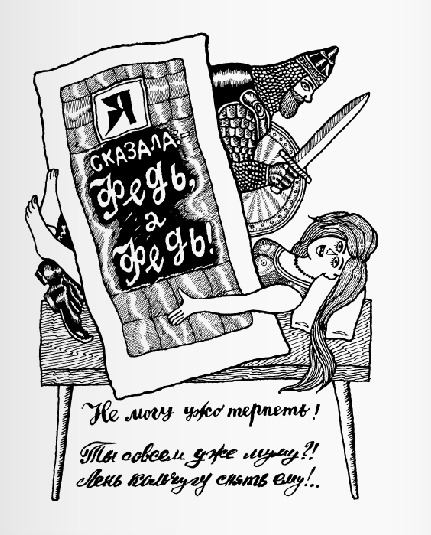 Я
СКАЗАЛА:
Федь,
а
Федь!
Не могу ужо терпеть!
Ты совсем уже муму?!
Лень кольчугу снять ему!..